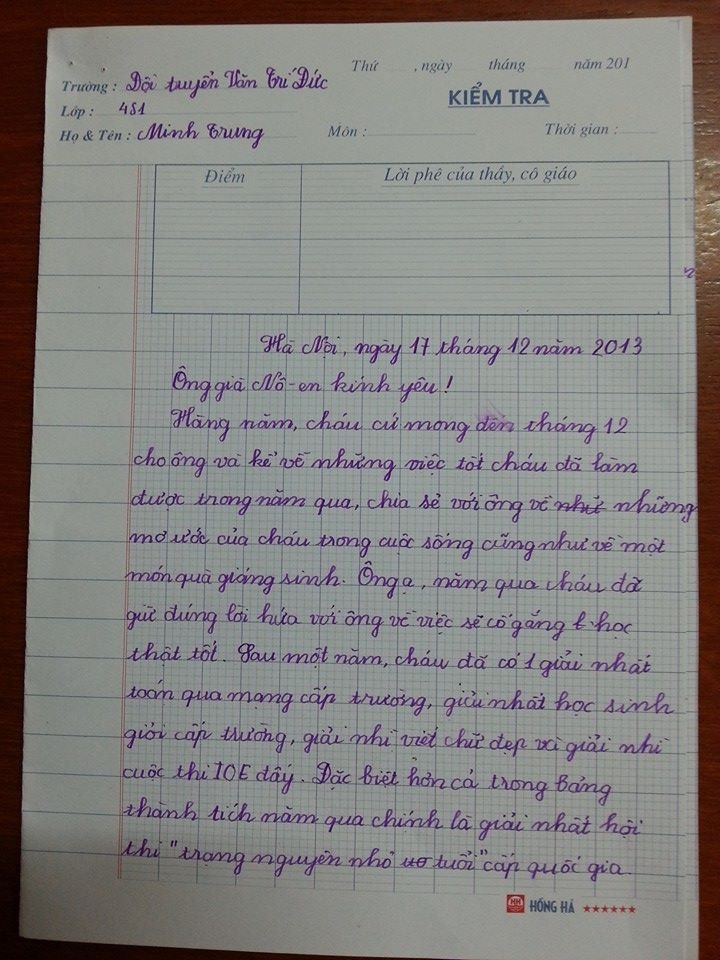 Thứ , ngày tháng năm 201
Trường : Đội tuyển Văn Trí Đức
KIỂM TRA
Lớp : 4S1
Họ & Tên : Minh Trung Môn : Thời gian :
Điểm Lời phê của thầy, cô giáo
Hà Nội, ngày 17 tháng 12 năm 2013
Ông già Nô-en kính yêu !
Hằng năm, cháu cứ mong đến tháng 12
cho ông và kể về những việc tốt cháu đã làm
được trong năm qua, chia sẻ với ông về như những
mơ ước của cháu trong cuộc sống cũng như về một
món quà giáng sinh. Ông ạ, năm qua cháu đã
giữ đúng lời hứa với ông về việc sẽ cố gắng t học
thật tốt. Sau một năm, cháu đã có 1 giải nhất
toán qua mạng cấp trường, giải nhất học sinh
giỏi cấp trường, giải nhì viết chữ đẹp và giải nhì
cuộc thi IOE đấy. Đặc biệt hơn cả trong bảng
thành tích năm qua chính là giải nhất hội
thi "trạng nguyên nhỏ tuổi" cấp quốc gia.
HỒNG HÀ ★★★★★★